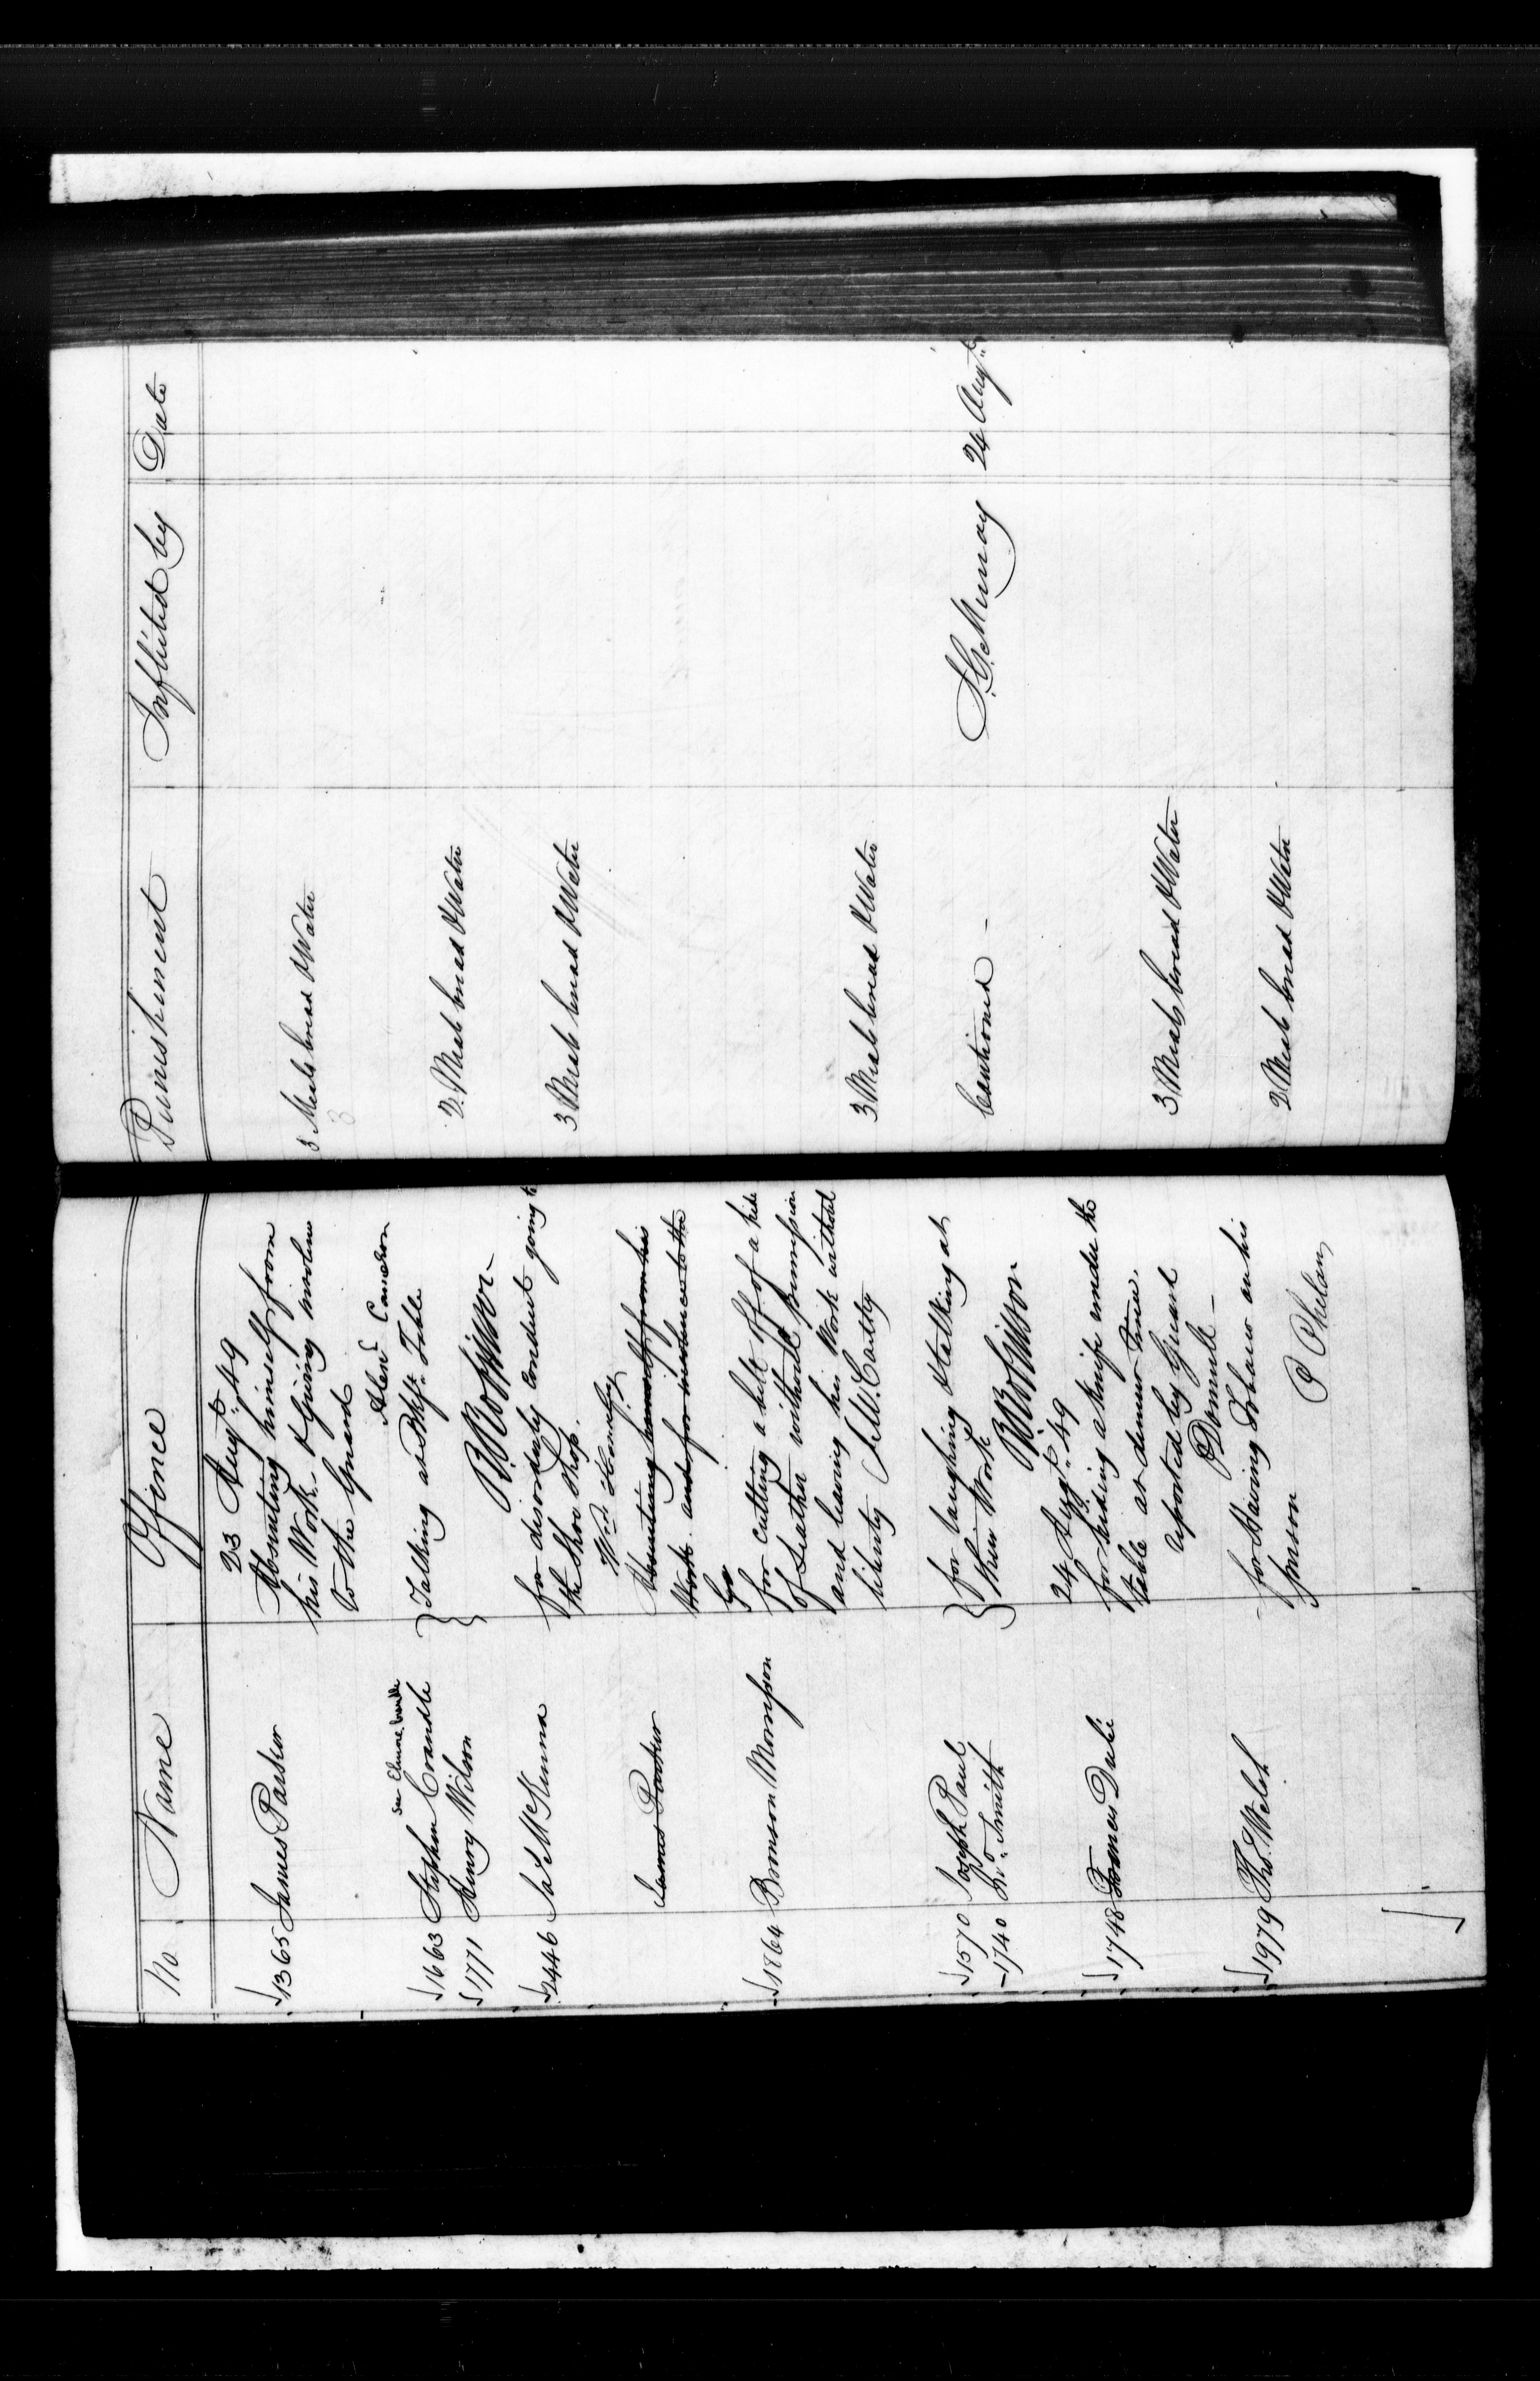 No Name Offence Punishment Inflicted by Date
23 Augt. 49
1365 James Parker Absenting himself from
his Work & Giving insolence 3 Meals bread & Water
to the Guard
Alexr. Cameron
1663 Stephen Crandle Talking at Bkft. Table
1771 Henry Wilson 2 Meals bread & Water
B. Robinson
2446 Jas McKenna for disorderly conduct going to
the Shoe Shop. 3 Meals bread & Water
Wm
James Parker Absenting himself from his
Work and for insolence to the
1864 Bronson Morrisson for cutting a side off of a hide
of Leather without permission
and leaving his Work without 3 Meals bread & Water
liberty McCarthy
1570 Joseph Paul for laughing & talking at
1740 Smith their Work Cautioned - McMurray 24 Augt.
B Robinson
24 Augt. 49
1748 Francis Dubé for hiding a knife under the
table at dinner time. 3 Meals bread & Water
reported by Guard
1979 Thos. Welsh for Having Tobacco on his 2 Meals bread & Water
person P Phelan